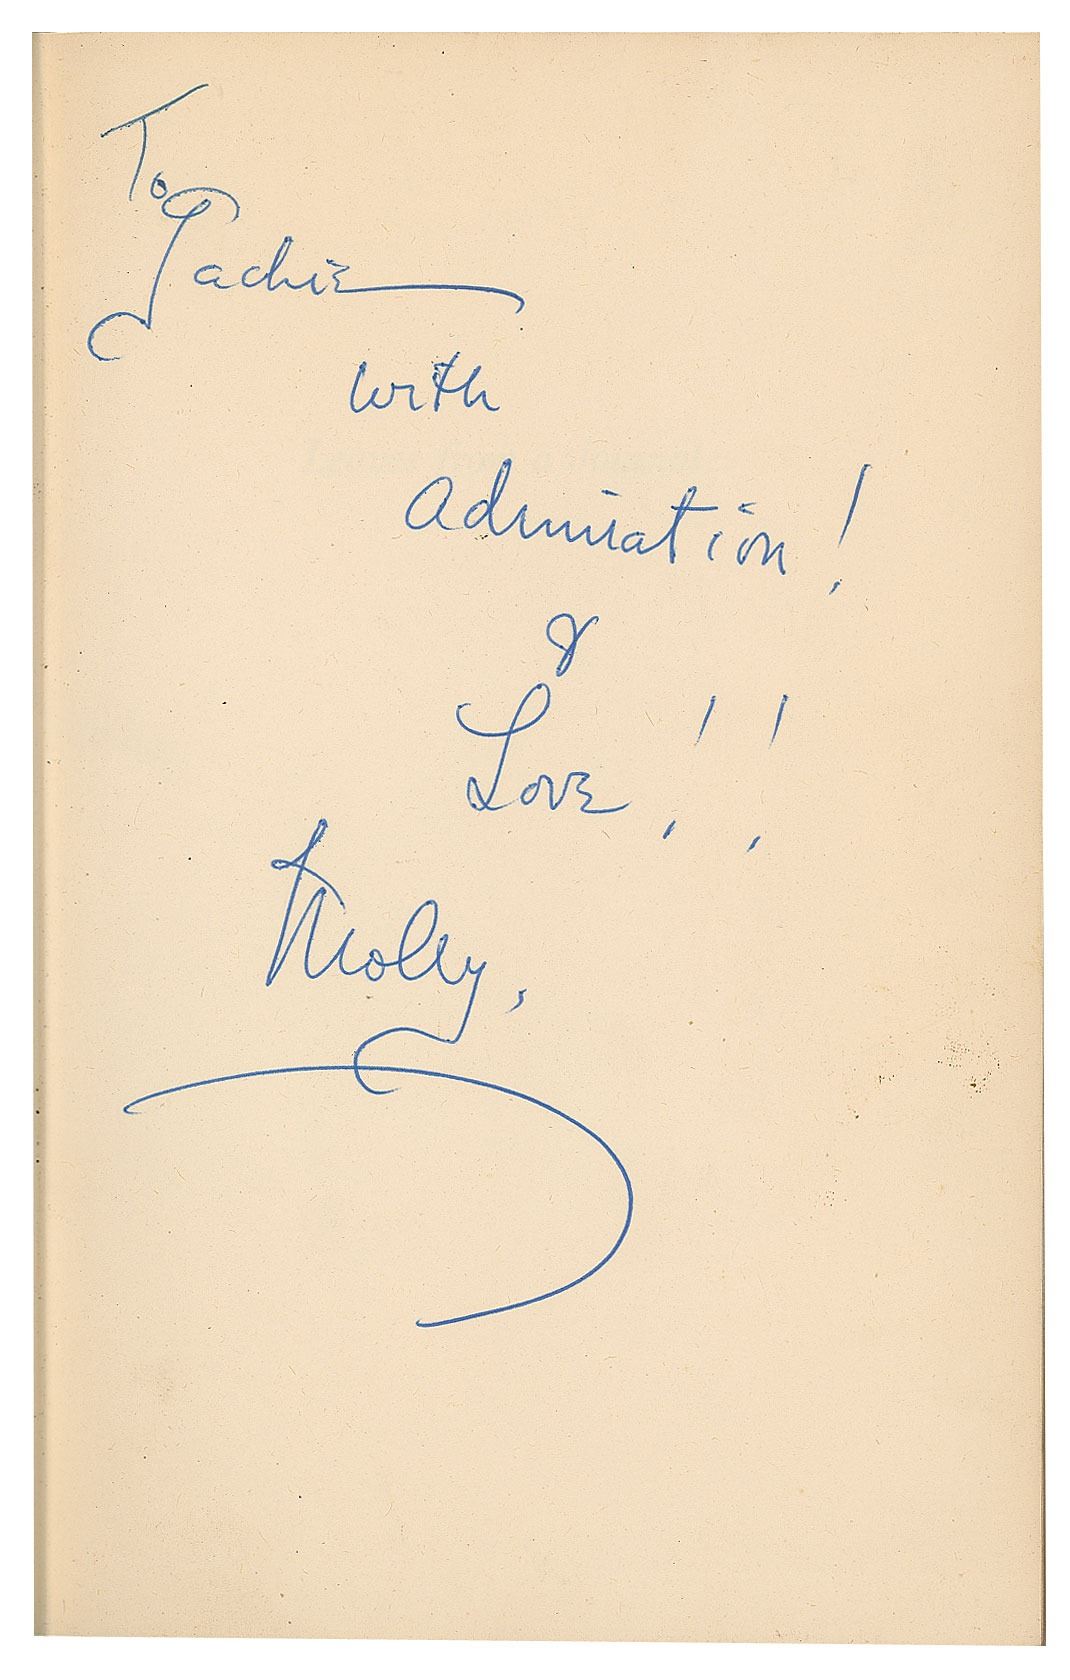 To
Jackie
with
Admiration!
&
Love!!
Molly,